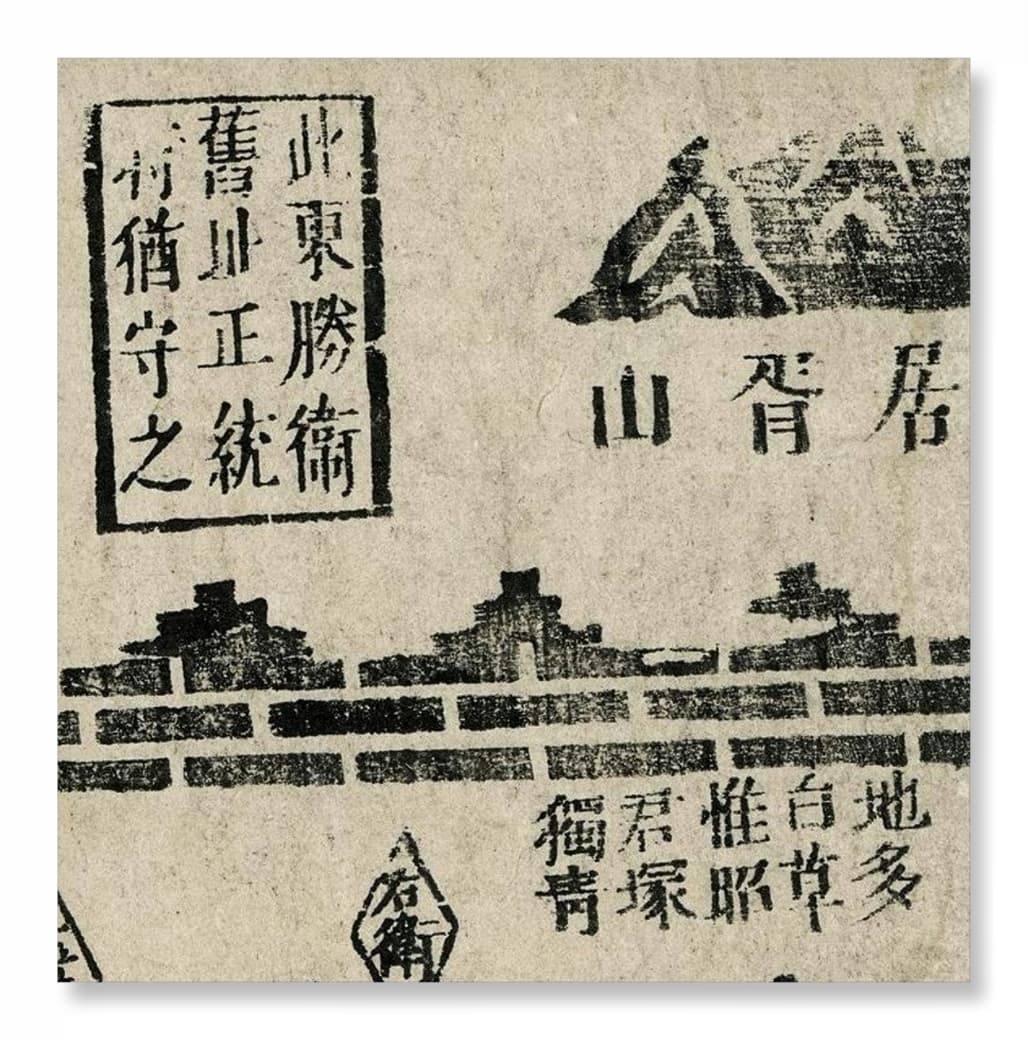 此東勝衛
舊址正統
前猶守之
居胥山
地多
白草
惟昭
君塚
獨青
右衛